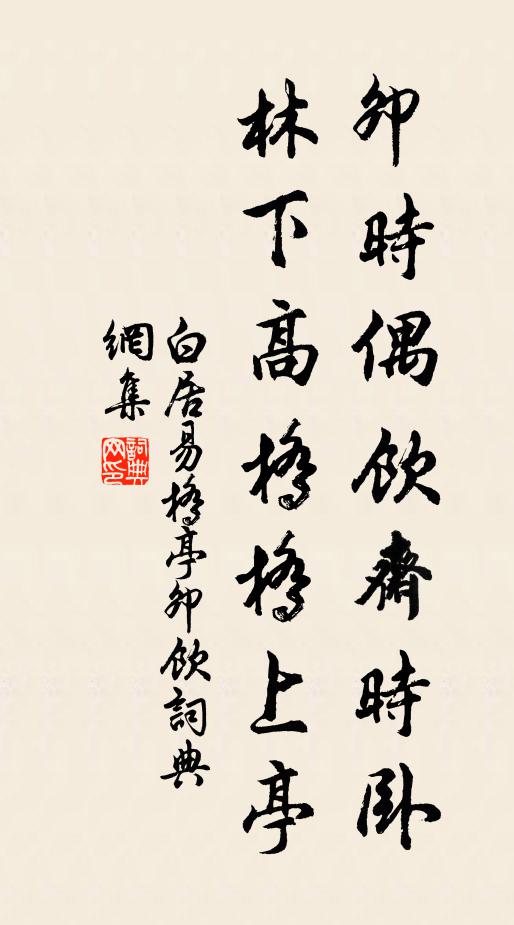 卯時偶飲齋時臥
林下高橋橋上亭
白居易橋亭卯飲詞典
網集
詞典網印